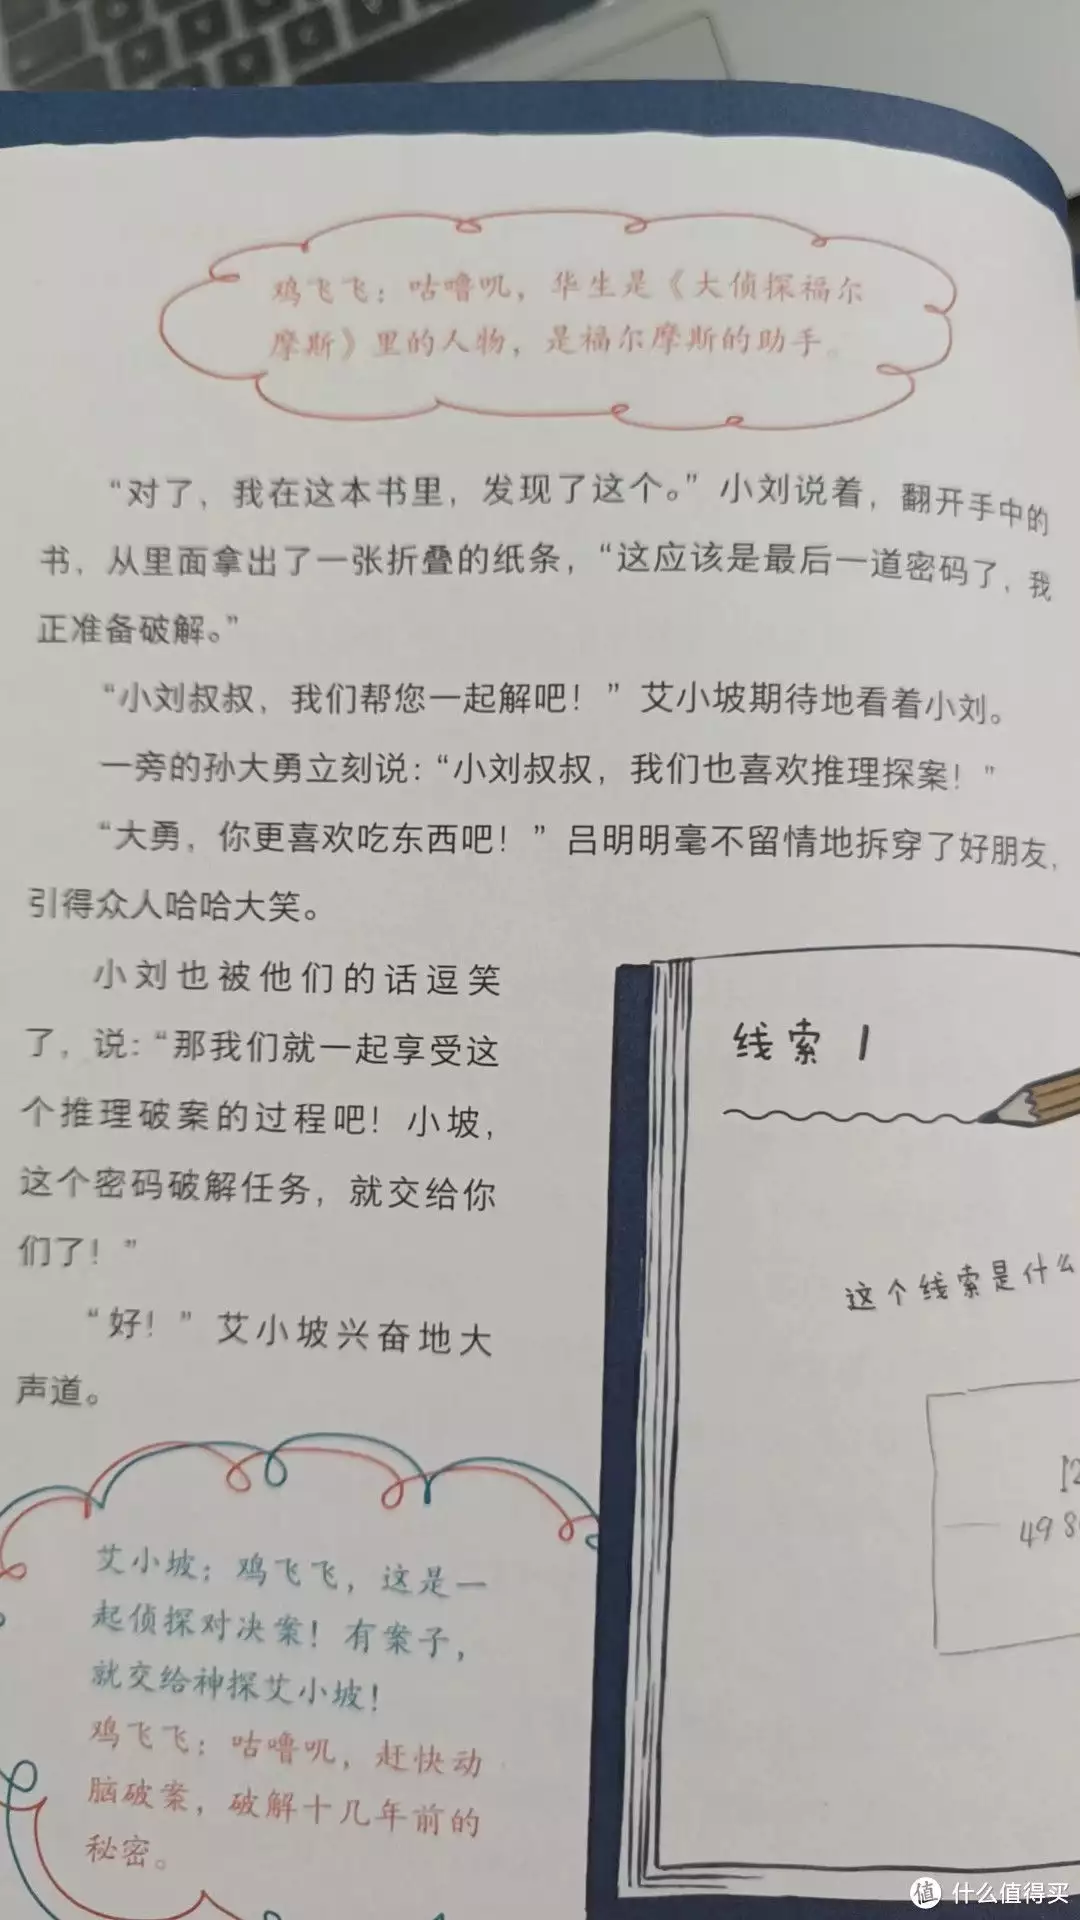 鸡飞飞：咕噜叽，华生是《大侦探福尔
摩斯》里的人物，是福尔摩斯的助手。
“对了，我在这本书里，发现了这个。”小刘说着，翻开手中的
书，从里面拿出了一张折叠的纸条，“这应该是最后一道密码了，我
正准备破解。”
“小刘叔叔，我们帮您一起解吧！”艾小坡期待地看着小刘。
一旁的孙大勇立刻说：“小刘叔叔，我们也喜欢推理探案！”
“大勇，你更喜欢吃东西吧！”吕明明毫不留情地拆穿了好朋友，
引得众人哈哈大笑。
小刘也被他们的话逗笑
了，说：“那我们就一起享受这
个推理破案的过程吧！小坡，
这个密码破解任务，就交给你
们了！”
“好！”艾小坡兴奋地大
声道。
艾小坡：鸡飞飞，这是一
起侦探对决案！有案子，
就交给神探艾小坡！
鸡飞飞：咕噜叽，赶快动
脑破案，破解十几年前的
秘密。
线索1
这个线索是什么
49 8
值 什么值得买